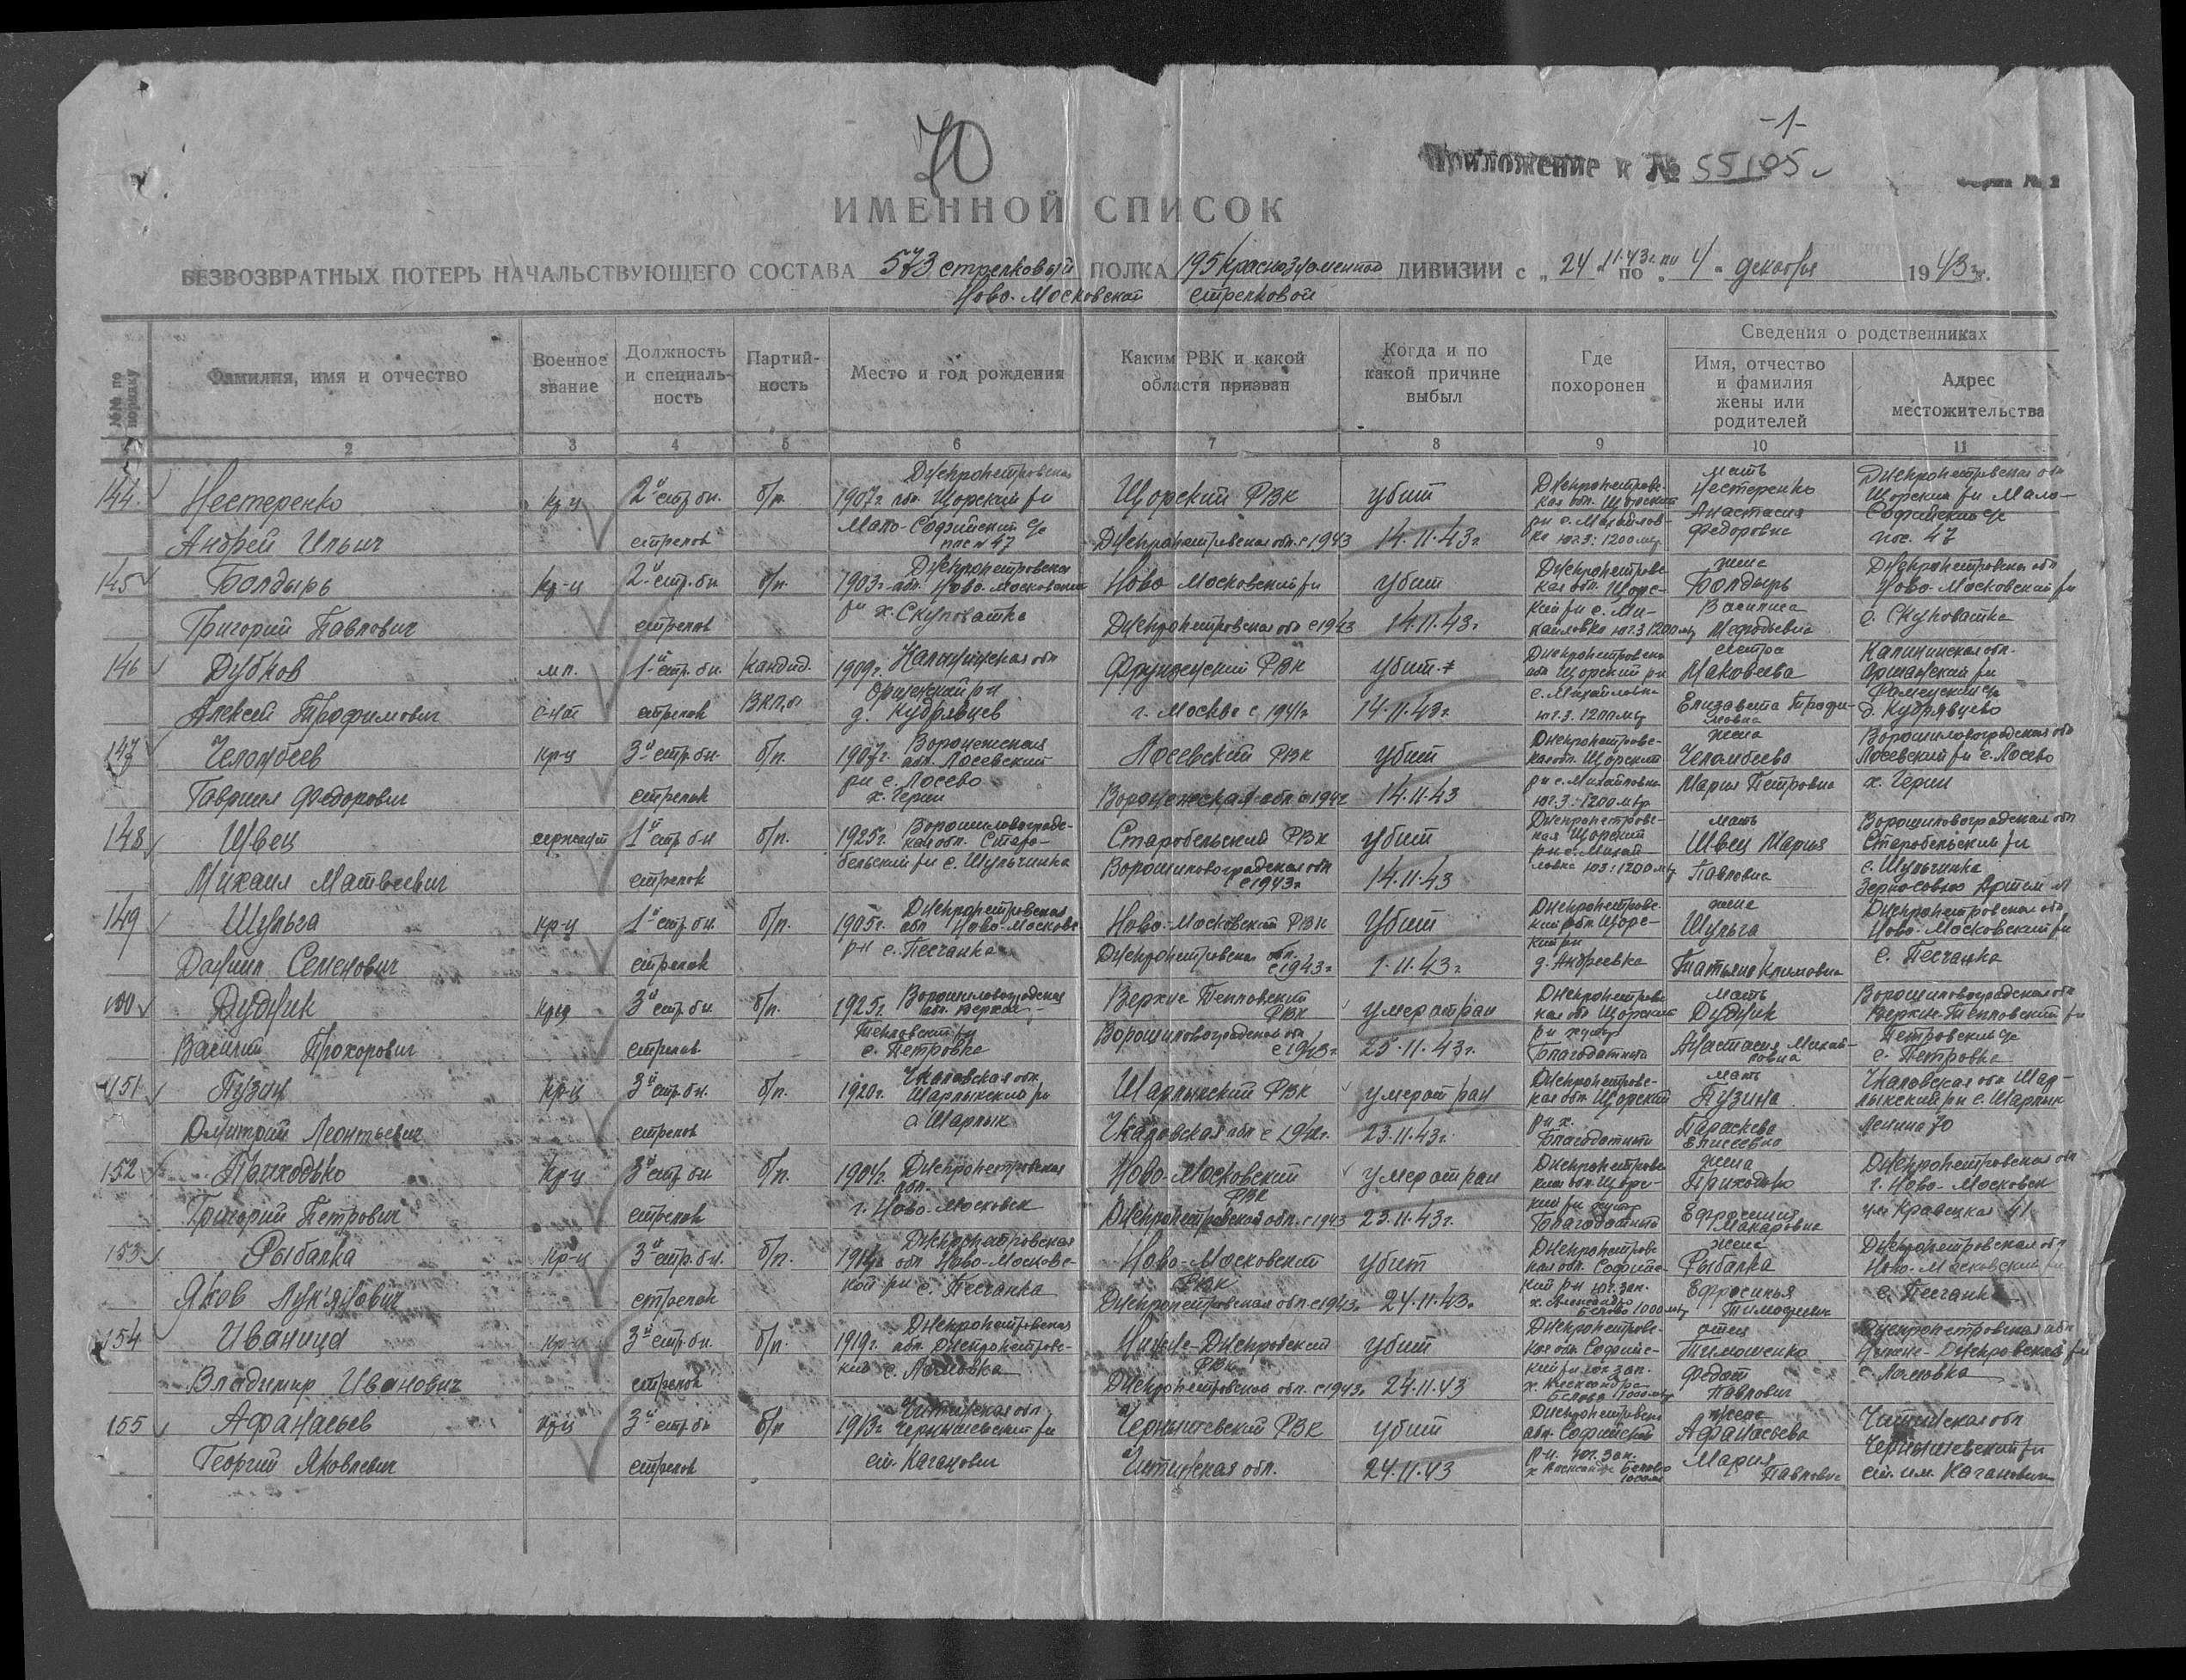 -1-
70
Приложение к № 55105
Форма № 2
ИМЕННОЙ СПИСОК
БЕЗВОЗВРАТНЫХ ПОТЕРЬ НАЧАЛЬСТВУЮЩЕГО СОСТАВА 573 стрелковый ПОЛКА 195 Краснознаменной ДИВИЗИИ с „ 24 " 11.43г. по „ 4 " декабря 1943г.
Ново-Московской стрелковой
№№ по порядку
Фамилия, имя и отчество
Военное звание
Должность и специальность
Партийность
Место и год рождения
Каким РВК и какой области призван
Когда и по какой причине выбыл
Где похоронен
Сведения о родственниках
Имя, отчество и фамилия жены или родителей
Адрес местожительства
2 3 4 5 6 7 8 9 10 11
144. Нестеренко Андрей Ильич
кр-ц
2й стр. бн. стрелок
б/п.
1907г. Днепропетровская обл. Щорский р-н Мало-Софийский с/с пос. № 47
Щорский РВК Днепропетровская обл. с 1943
убит 14.11.43г.
Днепропетровская обл. Щорский р-н с. Михайловка юг.з. 1200 мтр
мать Нестеренко Анастасия Федоровна
Днепропетровская обл Щорский р-н Мало-Софийский с/с пос. 47
145 Болдырь Григорий Павлович
кр-ц
2й стр. бн. стрелок
б/п.
1903г. Днепропетровская обл. Ново-Московский р-н х. Скуповатка
Ново Московский р-н Днепропетровская обл с 1943
убит 14.11.43г.
Днепропетровская обл. Щорский р-н с. Михайловка юг.з 1200 мтр
жена Болдырь Василиса Мефодьевна
Днепропетровская обл Ново-Московский р-н с. Скуповатка
146 Дубков Алексей Трофимович
мл. с-нт
1й стр. бн. стрелок
кандид. ВКП/б
1909г. Калининская обл д. Кудрявцев
Фрунзенский РВК г. Москва с 1941г
убит. 14.11.43г.
Днепропетровская обл Щорский р-н с. Михайловка юг.з. 1200 мтр
сестра Маковеева Елизавета Трофимовна
Калининская обл. д. Кудрявцево
147 Челомбеев Гаврил Федорович
кр-ц
3й стр. бн. стрелок
б/п.
1907г. Воронежская обл. Лосевский р-н с. Лосево
Лосевский РВК Воронежская обл с 1942
убит 14.11.43
Днепропетровская обл. Щорский р-н с. Михайловка юг.з. 1200 мтр
жена Челомбеева Мария Петровна
Ворошиловоградская обл Лосевский р-н с. Лосево
148 Швец Михаил Матвеевич
сержант
1й стр бн стрелок
б/п.
1925г. Ворошиловоградская обл. Старобельский р-н с. Шульгинка
Старобельский РВК Ворошиловоградская обл с 1943г
убит 14.11.43
Днепропетровская Щорский р-н с. Михайловка юз: 1200 мтр
мать Швец Мария Павловна
Ворошиловоградская обл Старобельский р-н с. Шульгинка Артем
149 Шульга Даниил Семенович
кр-ц
1й стр. бн. стрелок
б/п.
1905г. Днепропетровская обл Ново-Московс. р-н с. Песчанка
Ново-Московский РВК Днепропетровская обл. с 1943г
убит 1.11.43г.
Днепропетровская обл. Щорский р-н д. Андреевка
жена Шульга Татьяна Климовна
Днепропетровская обл Ново-Московский р-н с. Песчанка
150 Дудник Василий Прохорович
кр-ц
3й стр. бн. стрелок
б/п.
1925г. Ворошиловоградская обл. Верхне-Тепловский р-н с. Петровка
Верхне Тепловский РВК Ворошиловоградская обл с 1943г.
умер от ран 25.11.43г.
Днепропетровская обл Щорский р-н хутор Благодатный
мать Дудник Анастасия Михайловна
Ворошиловоградская обл Верхне-Тепловский р-н Петровский с/с с. Петровка
151 Пузин Дмитрий Леонтьевич
кр-ц
3й стр. бн. стрелок
б/п.
1920г. Чкаловская обл. Шарлыкский р-н с Шарлык
Шарлыкский РВК Чкаловская обл с 1942г.
умер от ран 23.11.43г.
Днепропетровская обл. Щорский р-н х. Благодатный
мать Пузина Параскева Елисеевна
Чкаловская обл Шарлыкский р-н с. Шарлык Ленина 70
152 Приходько Григорий Петрович
кр-ц
3й стр. бн. стрелок
б/п.
1904г. Днепропетровская обл. г. Ново-Московск
Ново-Московский РВК Днепропетровская обл. с 1943
умер от ран 23.11.43г.
Днепропетровская обл. Щорский р-н хутор Благодатный
жена Приходько Ефросиния Макаровна
Днепропетровская обл г. Ново-Московск 41
153 Рыбалка Яков Лук'янович
кр-ц
3й стр. бн. стрелок
б/п.
Днепропетровская обл Ново-Московской р-н с. Песчанка
Ново-Московский РВК Днепропетровская обл. с 1943г.
убит 24.11.43г.
Днепропетровская обл. Софиевский р-н юг. зап. х. Александро Белово 1000 мтр
жена Рыбалка Ефросинья Тимофеевна
Днепропетровская обл Ново-Московский р-н с. Песчанка
154 Иваница Владимир Иванович
кр-ц
3й стр. бн. стрелок
б/п.
1919г. Днепропетровская обл. Днепропетровский с. Ломовка
Нижне-Днепровский РВК Днепропетровская обл. с 1943г.
убит 24.11.43
Днепропетровская обл. Софиевский р-н юг. зап. х. Александро Белово 1000 мтр
отец Тимошенко Федот Павлович
Днепропетровская обл Нижне-Днепровский р-н с. Ломовка
155 Афанасьев Георгий Яковлевич
кр-ц
3й стр. бн стрелок
б/п
1913г Читинская обл Чернышевский р-н ст. Каганович
Чернышевский РВК Читинская обл.
убит 24.11.43
Днепропетровская обл. Софиевский р-н. юг. зап. х Александро Белово 1000 м
жена Афанасьева Мария Павловна
Читинская обл Чернышевский р-н ст. им. Кагановича